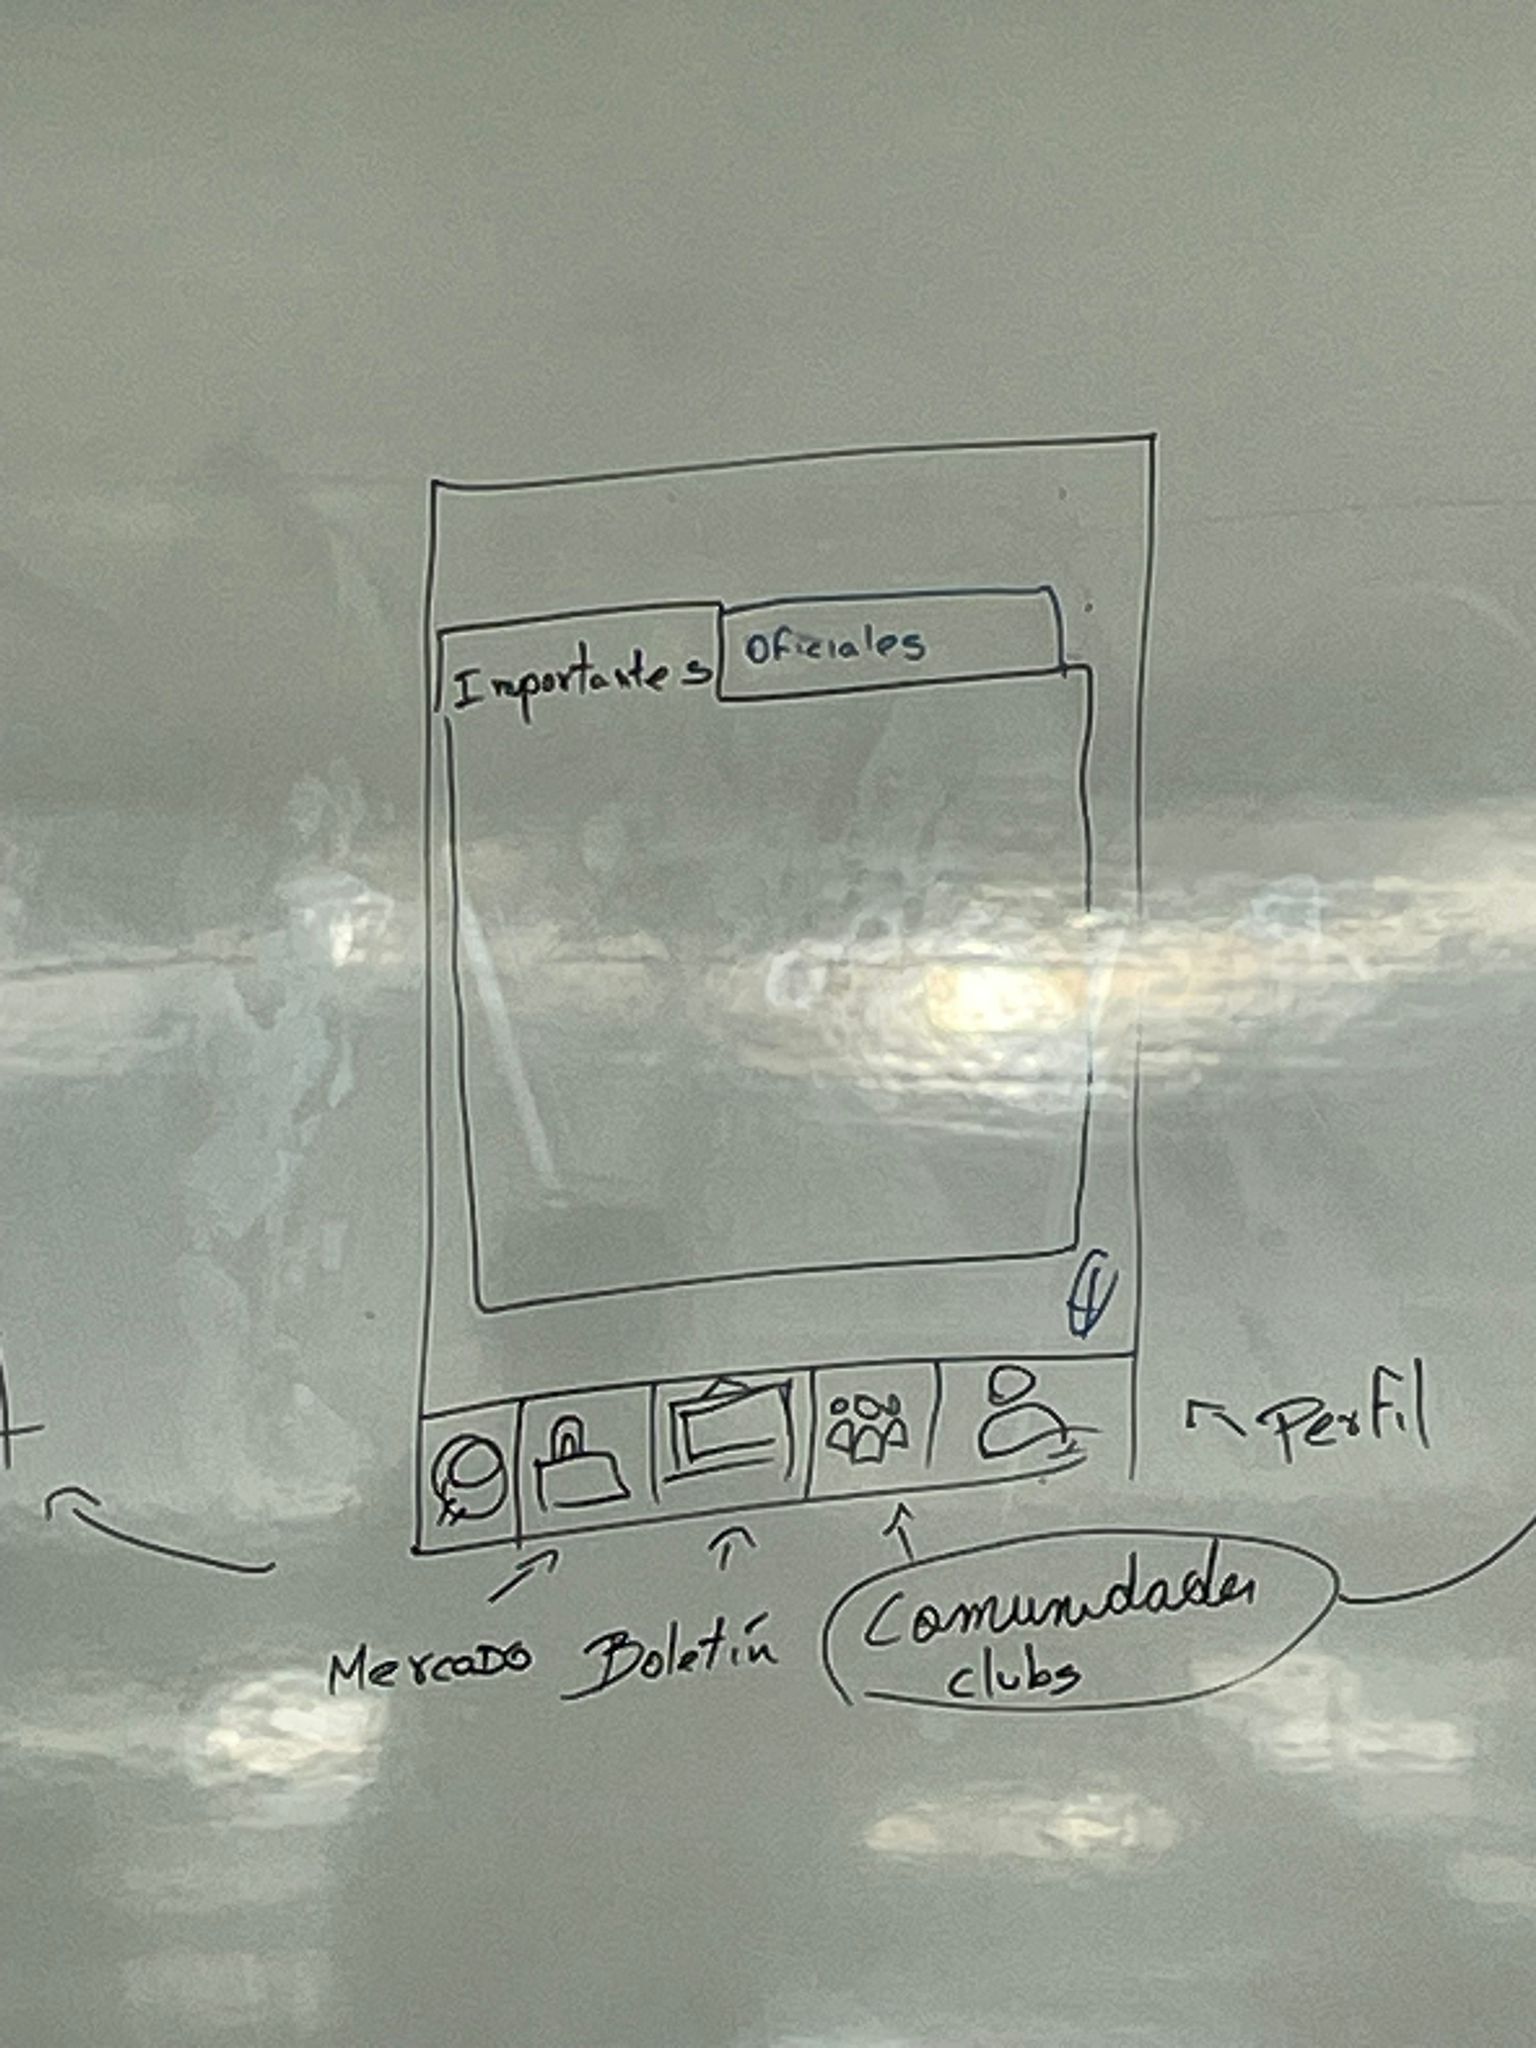 Importantes
Oficiales
Perfil
Mercado
Boletín
Comunidades
clubs